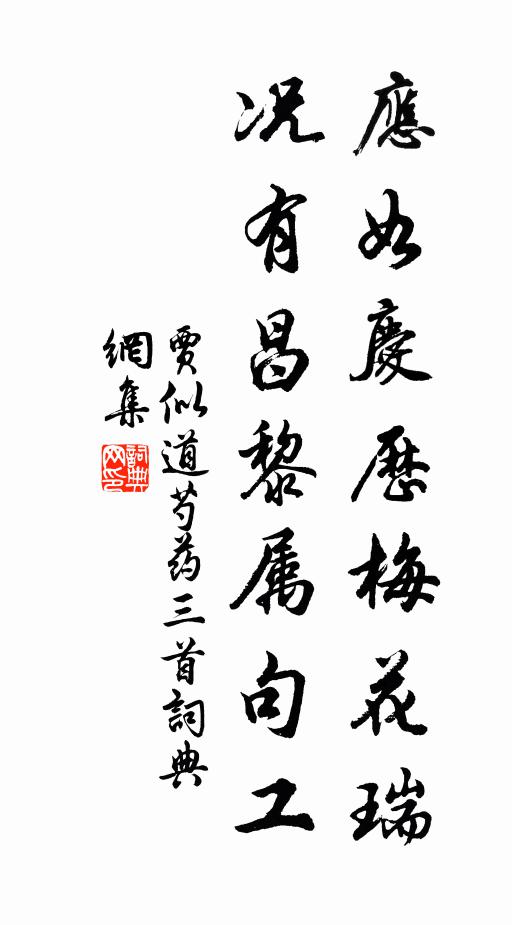 應如慶歷梅花瑞
况有昌黎属句工
賈似道芍药三首詞典
網集
詞典網印